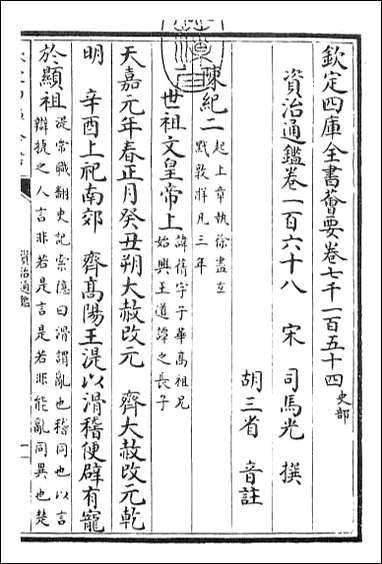 欽定四庫全書薈要卷七千一百五十四 史部
資治通鑑卷一百六十八 宋 司馬光 撰
胡三省 音註
陳紀二 起上章執徐盡玄黓敦牂凡三年
世祖文皇帝上 諱蒨字子華高祖兄始興王道譚之長子
天嘉元年春正月癸丑朔大赦改元 齊大赦改元乾
明 辛酉上祀南郊 齊高陽王湜以滑稽便辟有寵
於顯祖 湜常職翻史記索隠曰滑謂亂也稽同也以言辯捷之人言非若是言是若非能亂同異也楚
資治通鑑
一